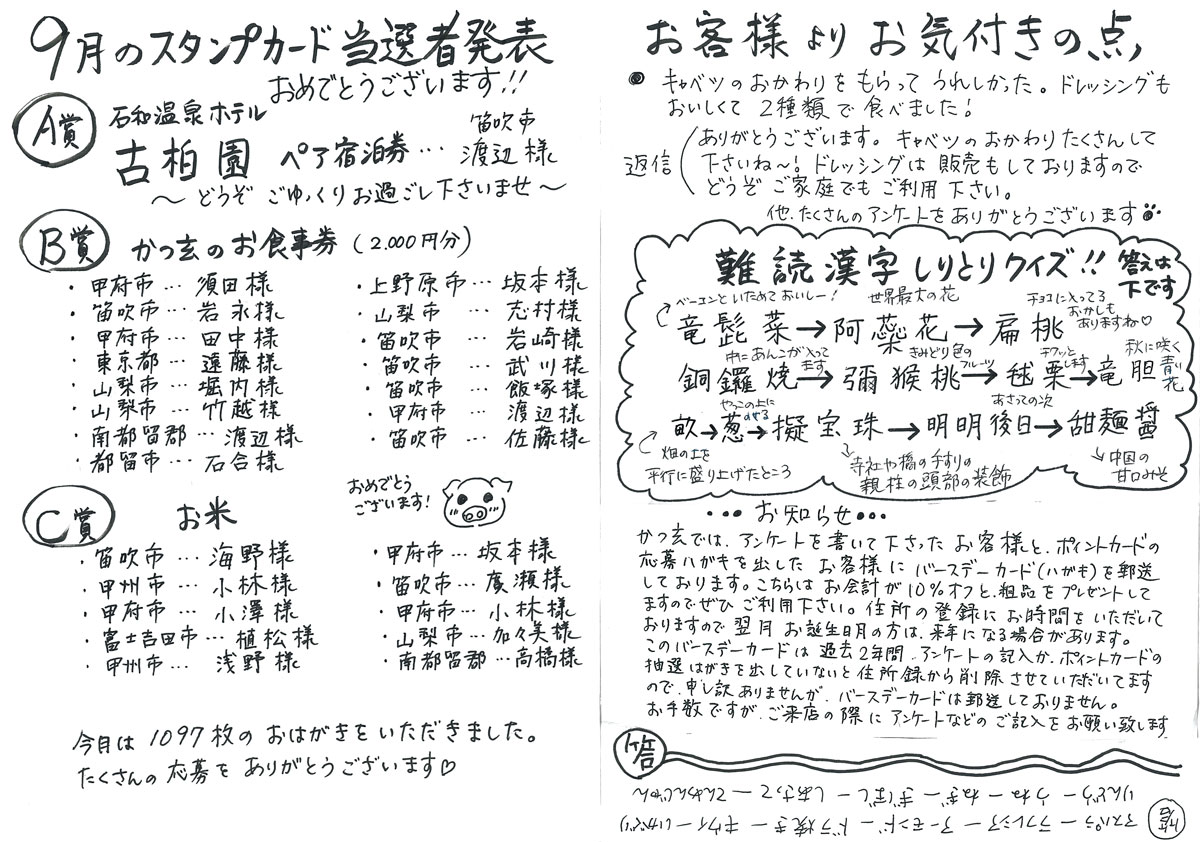 9月のスタンプカード当選者発表
おめでとうございます!!
A賞
石和温泉ホテル
古柏園 ペア宿泊券…
笛吹市
渡辺様
～どうぞ ごゆっくりお過ごし下さいませ～
B賞
かつ玄のお食事券 (2.000円分)
・甲府市…須田様
・笛吹市…岩永様
・甲府市…田中様
・東京都…遠藤様
・山梨市…堀内様
・山梨市…竹越様
・南都留郡…渡辺様
・都留市…石合様
・上野原市…坂本様
・山梨市…志村様
・笛吹市…岩崎様
・笛吹市…武川様
・笛吹市…飯塚様
・甲府市…渡辺様
・笛吹市…佐藤様
C賞
お米
おめでとう
ございます!
・笛吹市…海野様
・甲州市…小林様
・甲府市…小澤様
・富士吉田市…植松様
・甲州市…浅野様
・甲府市…坂本様
・笛吹市…廣瀬様
・甲府市…小林様
・山梨市…加々美様
・南都留郡…高橋様
今月は1097枚のおはがきをいただきました。
たくさんの応募をありがとうございます♡
お客様よりお気付きの点
●キャベツのおかわりをもらってうれしかった。ドレッシングも
おいしくて2種類で食べました!
返信
ありがとうございます。キャベツのおかわりたくさんして
下さいね～!ドレッシングは販売もしておりますので
どうぞご家庭でもご利用下さい。
他、たくさんのアンケートをありがとうございます
難読漢字しりとりクイズ!!
答えは
下です
ベーコンといためておいしー!
世界最大の花
チョコに入ってる
おかしも
ありますね♡
竜髭菜→阿蘂花→扁桃
中にあんこが入って
ます
きみどり色の
フルーツ
チクッと
します
秋に咲く
青い
花
銅鑼焼→彌猴桃→毬栗→竜胆
やっこの上に
のせる
あさっての次
畝→葱→擬宝珠→明明後日→甜麺醤
畑の土を
平行に盛り上げたところ
寺社や橋の手すりの
親柱の頭部の装飾
中国の
甘口みそ
…お知らせ…
かつ玄では、アンケートを書いて下さったお客様と、ポイントカードの
応募ハガキを出したお客様にバースデーカード(ハガキ)を郵送
しております。こちらはお会計が10%オフと、粗品をプレゼントして
ますのでぜひご利用下さい。住所の登録にお時間をいただいて
おりますので翌月お誕生日月の方は、来年になる場合があります。
このバースデーカードは過去2年間、アンケートの記入か、ポイントカードの
抽選はがきを出していないと住所録から削除させていただいてます
ので、申し訳ありませんが、バースデーカードは郵送しておりません。
お手数ですが、ご来店の際にアンケートなどのご記入をお願い致します
答
答
アスパラ―ラフレシア―アーモンド―ドラ焼き―キウイ―いがぐり
りんどう―うね―ねぎ―ぎぼし―しあさって―てんめんじゃん